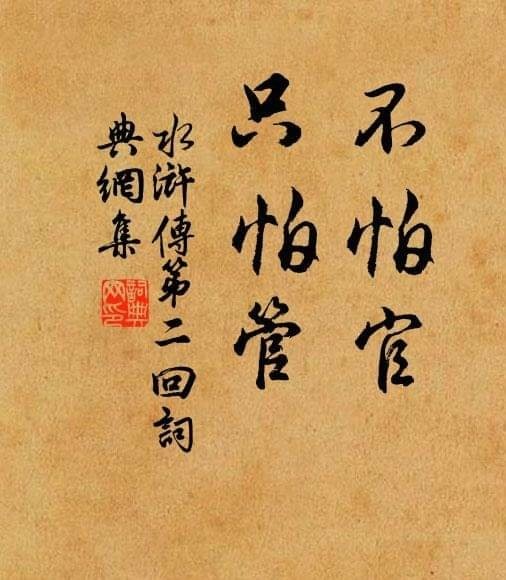 不怕官
只怕管
水滸傳第二回詞
典網集
詞典網印